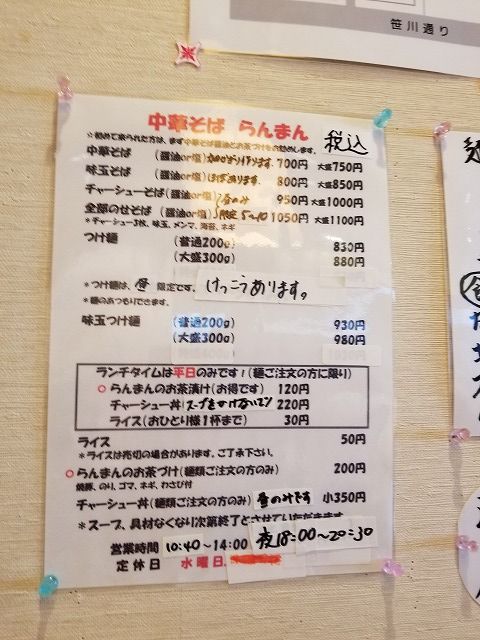 笹川通り
中華そば らんまん
*初めて来られた方は、まず中華そば醤油とお茶づけをお勧めします。 税込
中華そば (醤油or塩) 700円 大盛750円
味玉そば (醤油or塩) 800円 大盛850円
チャーシューそば(醤油or塩) 昼のみ 950円 大盛1000円
全部のせそば (醤油or塩) 限定5~10 1050円 大盛1100円
*チャーシュー3枚、味玉、メンマ、海苔、ネギ
つけ麺 (普通200g) 830円
(大盛300g) 880円
*つけ麺は、昼 限定です。 けっこうあります。
*麺のあつもりできます。
味玉つけ麺 (普通200g) 930円
(大盛300g) 980円
ランチタイムは平日のみです!(麺ご注文の方に限り)
○らんまんのお茶漬け(お得です) 120円
チャーシュー丼 スープをかけないで! 220円
ライス(おひとり様1杯まで) 30円
ライス 50円
*ライスは売切の場合があります。ご了承下さい。
○らんまんのお茶づけ(麺類ご注文の方のみ) 200円
焼豚、のり、ゴマ、ネギ、わさび付
チャーシュー丼(麺類ご注文の方のみ) 昼のみです 小350円
*スープ、具材なくなり次第終了とさせていただきます。
営業時間 10:40~14:00 夜18:00~20:30
定休日 水曜日